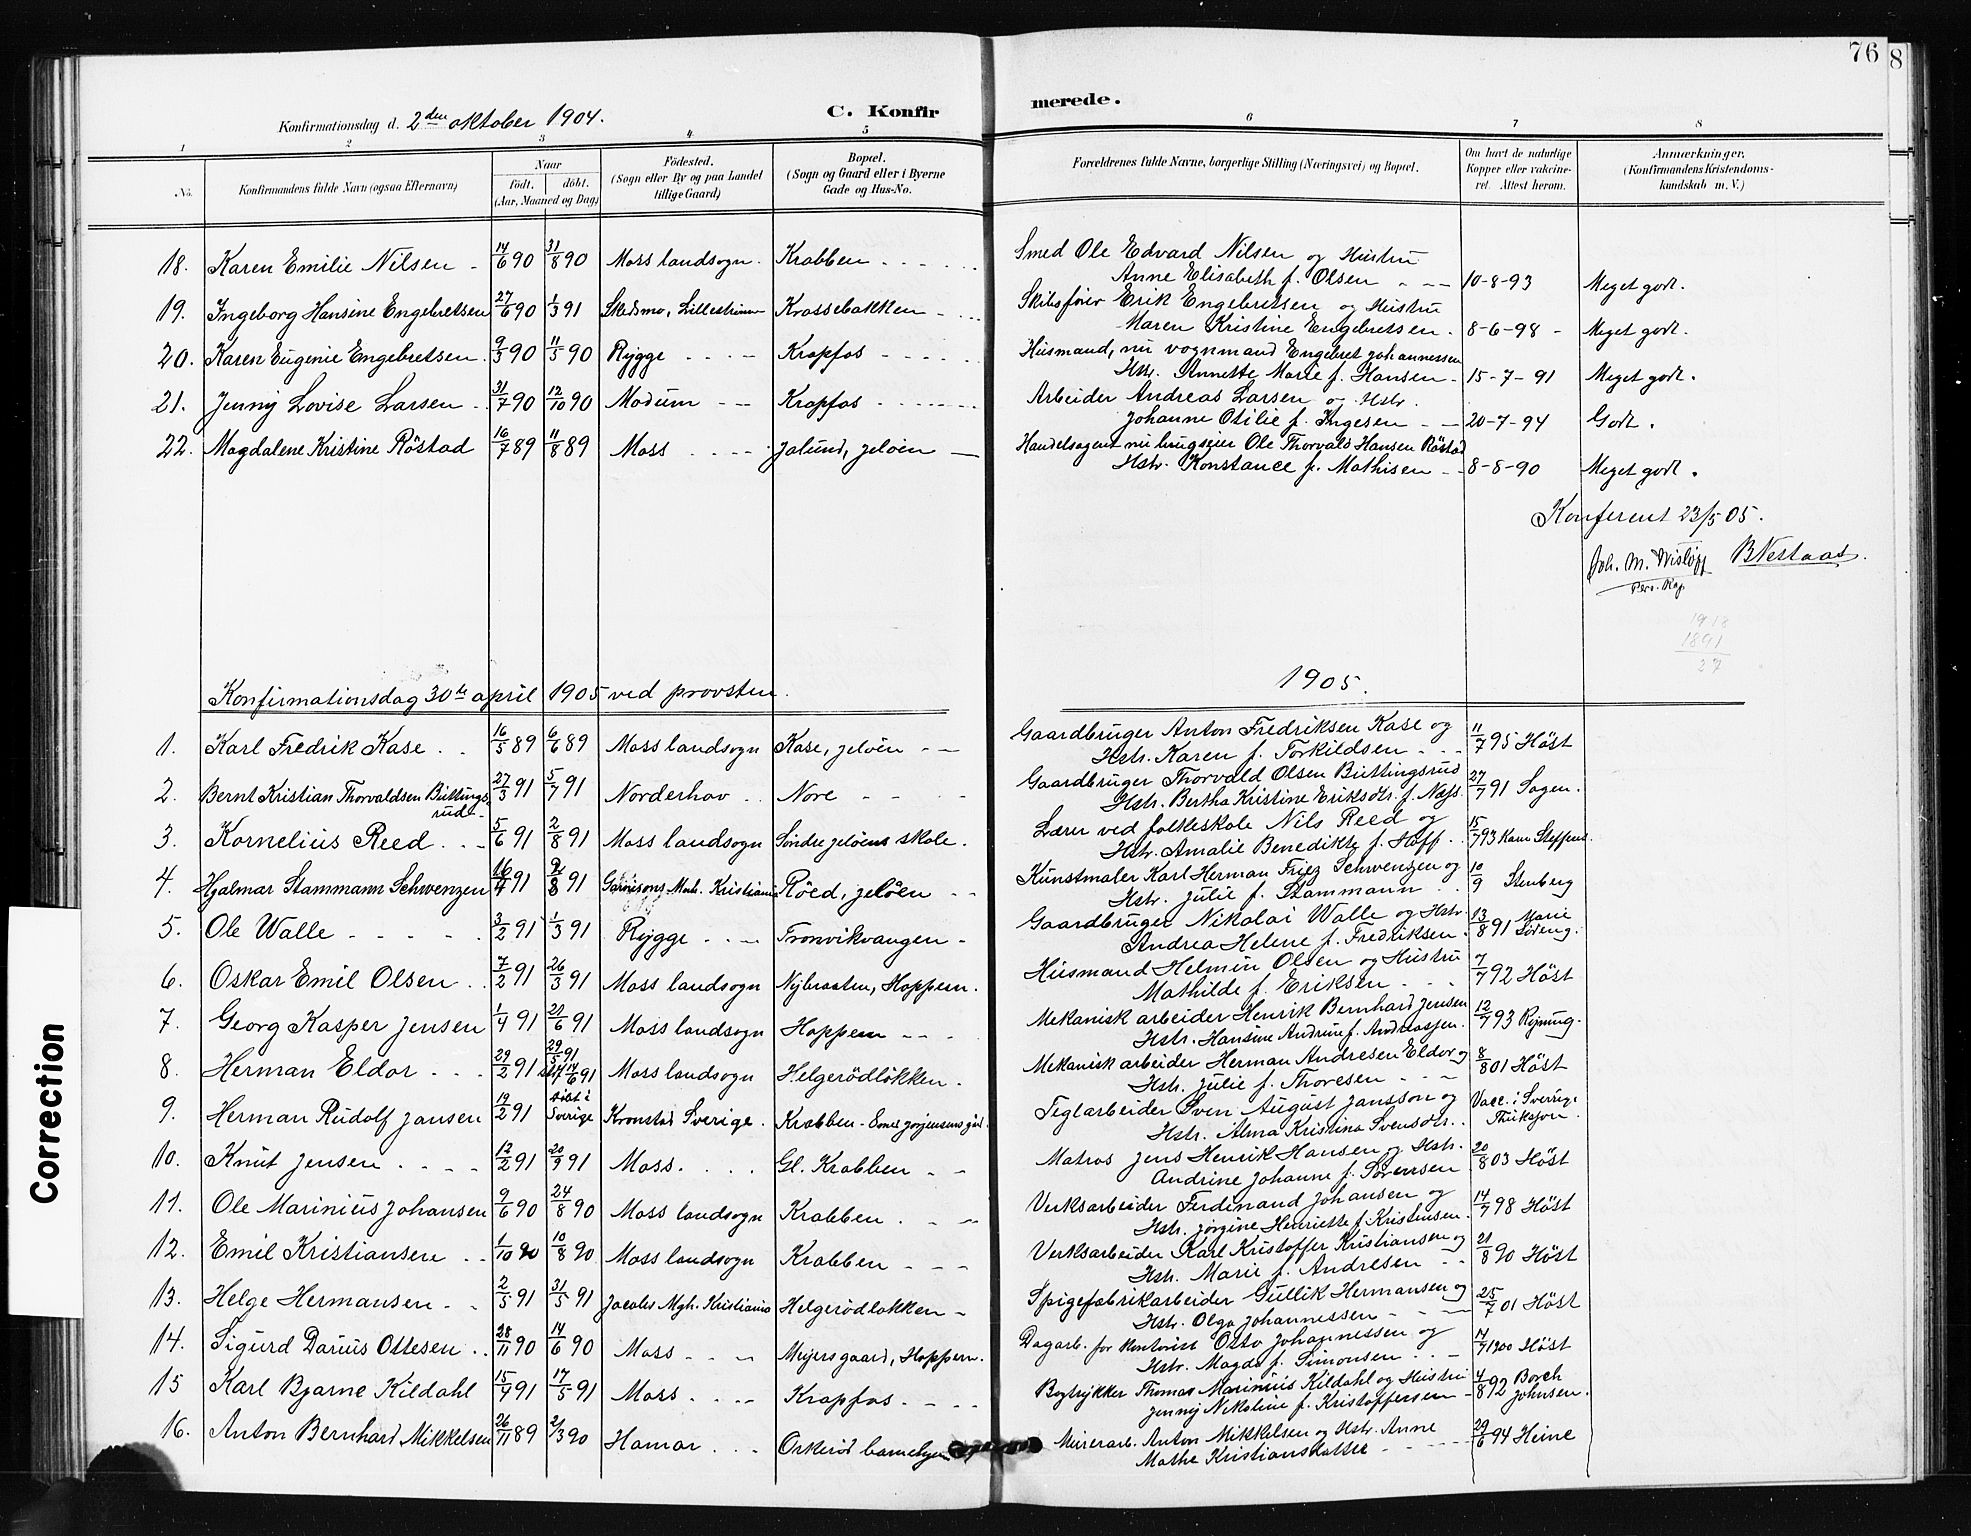 76
8
Konfirmationsdag d. 2den oktober 1904.
C. Konfirmerede.
1 2 3 4 5 6 7 8
No. Konfirmandens fulde Navn (ogsaa Efternavn) Naar Födt. döbt. (Aar, Maaned og Dag) Födested. (Sogn eller By og paa Landet tillige Gaard) Bopæl. (Sogn og Gaard eller i Byerne Gade og Hus-No. Forældrenes fulde Navne, borgerlige Stilling (Næringsvei) og Bopæl. Om havt de naturlige Kopper eller vakcineret. Attest herom. Anmærkninger. (Konfirmandens Kristendomskundskab m. V.)
18. Karen Emilie Nilsen 14/6 90 31/8 90 Moss landsogn. Krabben Smed Ole Edvard Nilsen og Hustru
Anne Elisabeth f. Olsen 10-8-93 Meget godt.
19. Ingeborg Hansine Engebretsen 27/6 90 1/3 91 Skedsmo, Lillestrømm Krossebakken Skibsfører Erik Engebretsen og Hustru
Maren Kristine Engebretsen. 8-6-98 Meget godt.
20. Karen Eugenie Engebretsen 9/3 90 11/5 90 Rygge Krapfos Husmand, nu vognmand Engebret Johannessen
Hstr. Annette Marie f. Hansen 15-7-91 Meget godt.
21. Jenny Lovise Larsen 31/7 90 12/10 90 Modum Krapfos Arbeider Andreas Larsen og Hstr.
Johanne Otilie f. Ingesen 20-7-94 Godt.
22. Magdalene Kristine Röstad 16/7 89 11/8 89 Moss Jalund, Jelöen Handelsagent nu brugseier Ole Thorvald Hansen Röstad
Hstr. Konstance f. Mathisen 8-8-90 Meget godt.
Konferent 23/5 05.
Joh. M. Wislöff BNestaas.
Pers. Kap.
1918
1891
27
Konfirmationsdag 30te april 1905 ved provsten. 1905.
1. Karl Fredrik Kase 16/5 89 6/6 89 Moss landsogn Kase, Jelöen Gaardbruger Anton Fredriksen Kase og
Hstr. Karen f. Torkildsen 11/7 95 Höst
2. Bernt Kristian Thorvaldsen Büttingsrud 27/3 91 5/7 91 Norderhov Nore Gaardbruger Thorvald Olsen Büttingsrud
Hstr. Bertha Kristine Eriksdtr. f. Næss 27/7 91 Sogen.
3. Kornelius Reed 5/6 91 2/8 91 Moss landsogn Søndre Jeløens skole. Lærer ved folkeskole Nils Reed og
Hstr. Amalie Benedikte f. Hoff 15/7 93 Kam Steffens
4. Hjalmar Stammann Schwenzen 16/4 91 9/8 91 Garnisons Mnh. Kristiania Röed, Jelöen Kunstmaler Karl Herman Friez Schwenzen og
Hstr. Julie f. Stammann 10/9 Stenberg
5. Ole Walle 3/2 91 1/3 91 Rygge Tronvikvangen Gaardbruger Nikolai Walle og Hstr.
Andrea Helene f. Fredriksen 13/8 91 Marie Söeng.
6. Oskar Emil Olsen 7/2 91 26/3 91 Moss landsogn Nybraaten, Hoppern. Husmand Helmin Olsen og Hustru
Mathilde f. Eriksen 7/7 92 Höst
7. Georg Kasper Jensen 1/4 91 21/6 91 Moss landsogn Hoppern Mekanisk arbeider Henrik Bernhard Jensen
Hstr. Hansine Andrine f. Andreassen. 12/7 93 Ryning.
8. Herman Eldor 29/2 91 29/5 91 14/6 91 Moss landsogn Helgerödlökken. Mekanisk arbeider Herman Andresen Eldor og
Hstr. Julie f. Thoresen 8/8 01 Höst
9. Herman Rudolf Jansen 19/2 91 döbt i Sverige Kronstad Sverige. Krabben - Emil Jörgensens gård. Teglarbeider Sven August Jansson og
Hstr. Alma Kristina Svensdtr. Vacc. i Sverige
10. Knut Jensen 12/2 91 20/9 91 Moss. Gl. Krabben Matros Jens Henrik Hansen og Hstr.
Andrine Johanne f. Sørensen 20/8 03 Höst
11. Ole Marinius Johansen 9/6 90 24/8 90 Moss landsogn Krabben. Verksarbeider Ferdinand Johansen og
Hstr. Jørgine Henriette f. Kristensen. 14/7 98 Höst
12. Emil Kristiansen 1/10 90 10/8 90 Moss landsogn Krabben Verksarbeider Karl Kristoffer Kristiansen og
Hstr. Marie f. Andresen 21/8 90 Höst
13. Helge Hermansen 2/5 91 31/5 91 Jacobs Mgh. Kristiania Helgerödlokken Spigefabrikarbeider Gullik Hermansen og
Hstr. Olga Johannessen 25/7 01 Höst
14. Sigurd Darius Ottesen 28/11 90 14/6 90 Moss Meijersgaard, Hoppern. Dagarb. for kontorist Otto Johannessen og
Hstr. Magda f. Simonsen 4/7 1900 Höst
15 Karl Bjarne Kildahl 15/4 91 17/5 91 Moss Krapfos. Bogtrykker Thomas Marinius Kildahl og Hustru
Jenny Nikoline f. Kristoffersen 4/8 92 Borch Johnsen.
16. Anton Bernhard Mikkelsen 26/11 89 2/3 90 Hamar Orkeröd barnehjem Murerarb. Anton Mikkelsen og Hstr. Anne
Mathe Kristiansdatter 29/6 94 Heine
Correction